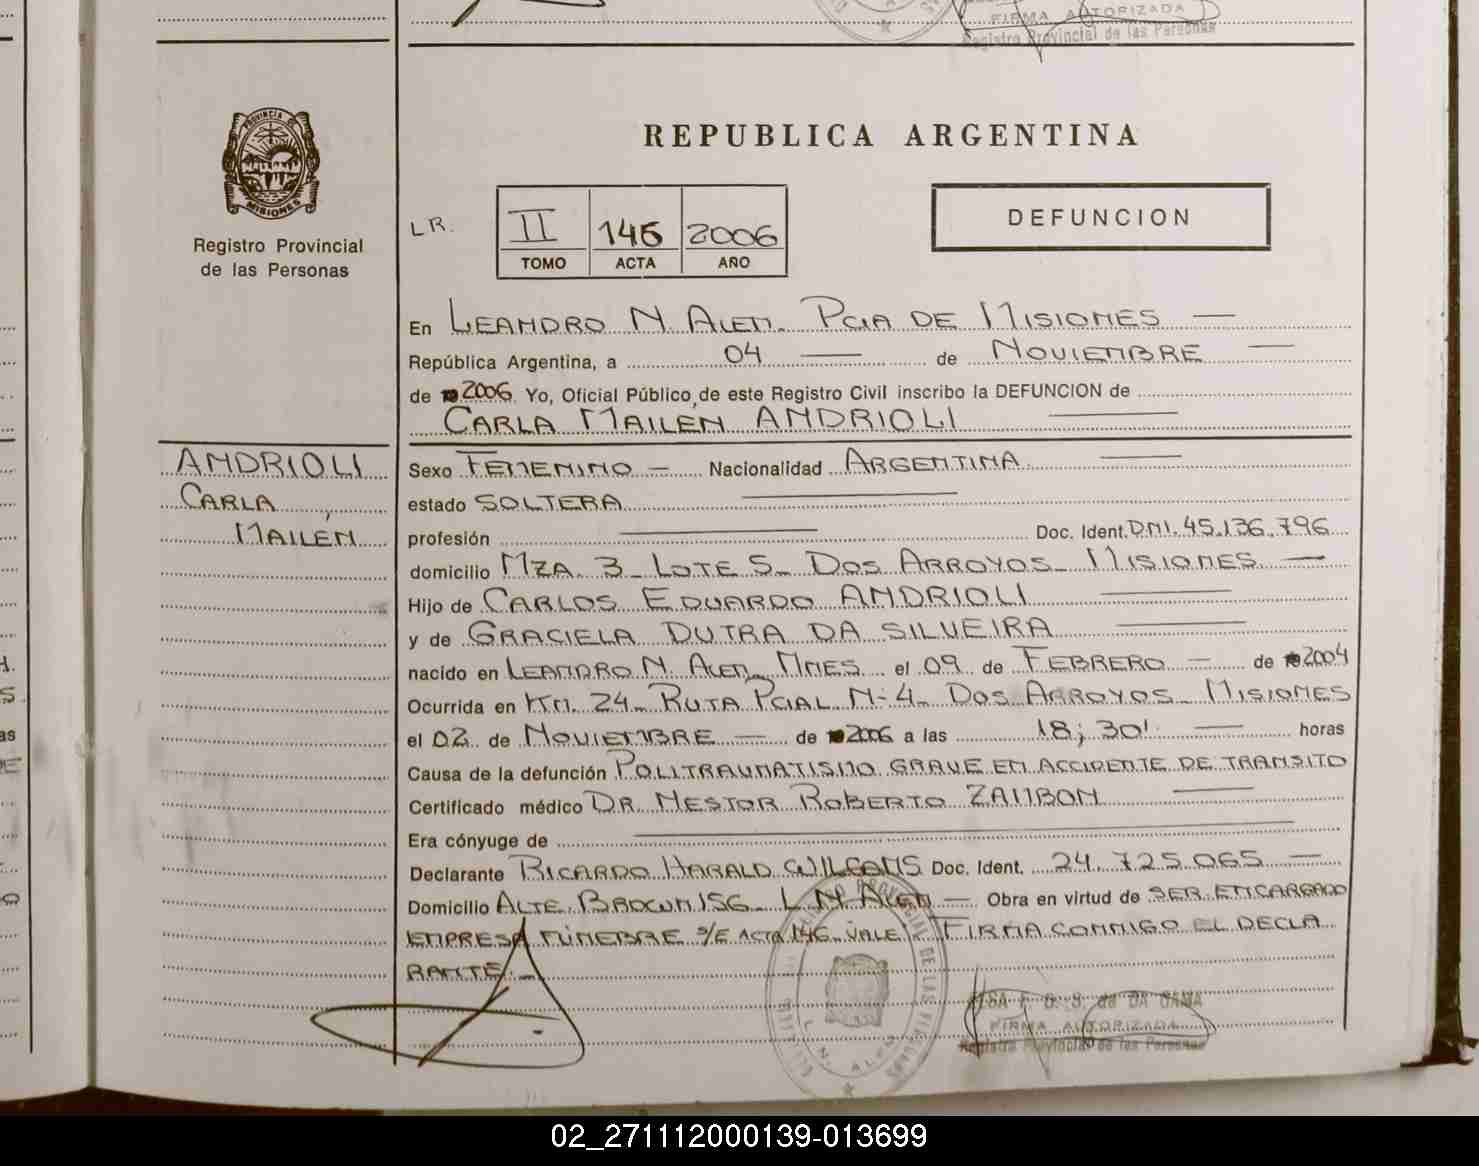 FIRMA AUTORIZADA
Registro Provincial de las Personas
PROVINCIA DE
MISIONES
Registro Provincial
de las Personas
REPUBLICA ARGENTINA
LR. II 146 2006
TOMO ACTA AÑO
DEFUNCION
En LEANDRO N. ALEM. PCIA DE MISIONES —
República Argentina, a 04 — de NOVIEMBRE —
de 2006 Yo, Oficial Público de este Registro Civil inscribo la DEFUNCION de
CARLA MAILÉN ANDRIOLI —
ANDRIOLI
CARLA
MAILÉN
Sexo FEMENINO — Nacionalidad ARGENTINA —
estado SOLTERA —
profesión — Doc. Ident. DNI. 45.136.796
domicilio MZA. 3 - LOTE 5 - DOS ARROYOS - MISIONES —
Hijo de CARLOS EDUARDO ANDRIOLI —
y de GRACIELA DUTRA DA SILVEIRA —
nacido en LEANDRO N. ALEM, MNES. el 09 de FEBRERO — de 2004
Ocurrida en KM. 24 - RUTA PCIAL N: 4 - DOS ARROYOS - MISIONES
el 02 de NOVIEMBRE — de 2006 a las 18; 30' — horas
Causa de la defunción POLITRAUMATISMO GRAVE EN ACCIDENTE DE TRANSITO
Certificado médico DR. NESTOR ROBERTO ZAMBON —
Era cónyuge de —
Declarante RICARDO HARALD Doc. Ident. 24.725.065 —
Domicilio ALTE. BROWN 156 - L. N. ALEM — Obra en virtud de SER ENCARGADO
EMPRESA FÚNEBRE S/E ACTA 146 - VALE - FIRMA CONMIGO EL DECLA
RANTE. —
DA GAMA
FIRMA AUTORIZADA
Registro Provincial de las Personas
L. N. ALEM
02_271112000139-013699